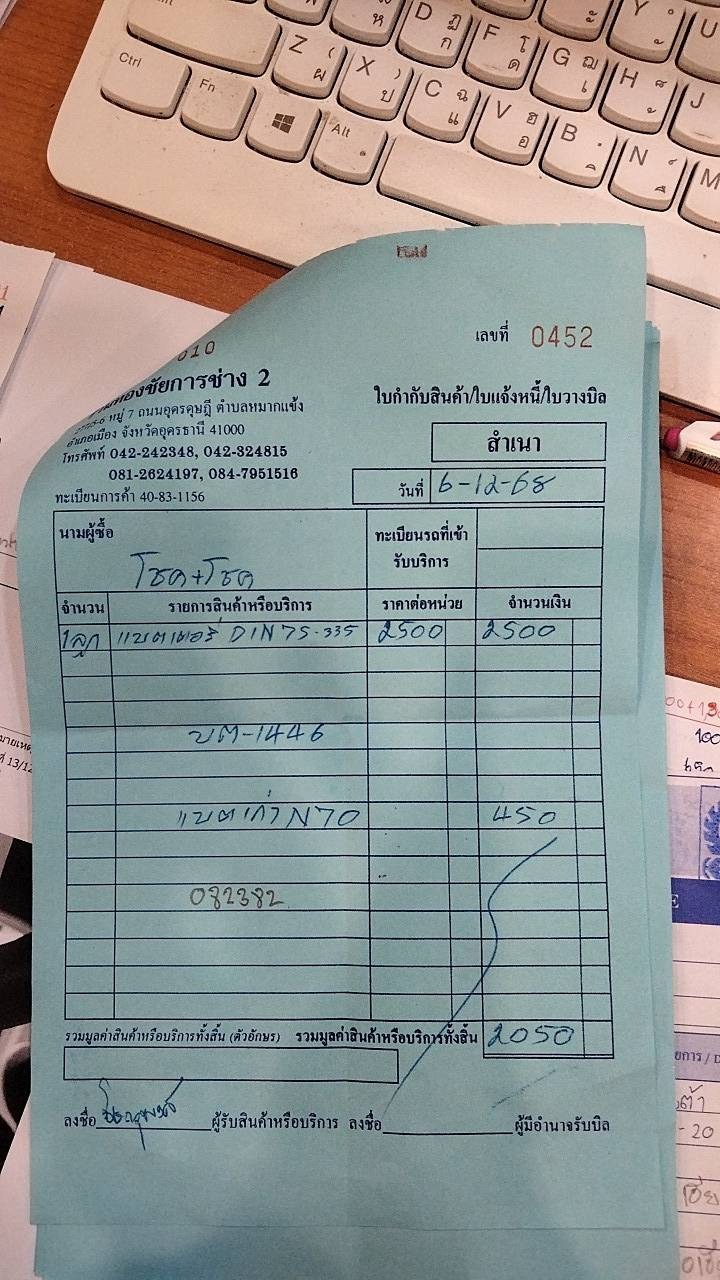 010
เลขที่ 0452
ทองชัยการช่าง 2
ใบกำกับสินค้า/ใบแจ้งหนี้/ใบวางบิล
หมู่ 7 ถนนอุดรดุษฎี ตำบลหมากแข้ง
อำเภอเมือง จังหวัดอุดรธานี 41000
สำเนา
โทรศัพท์ 042-242348, 042-324815
081-2624197, 084-7951516
ทะเบียนการค้า 40-83-1156
วันที่ 6-12-68
นามผู้ซื้อ ทะเบียนรถที่เข้า
รับบริการ
โชค+โชค
จำนวน รายการสินค้าหรือบริการ ราคาต่อหน่วย จำนวนเงิน
1ลูก แบตเตอรี่ DIN75-335 2500 2500
บต-1446
แบตเก่า N70 450
082382
รวมมูลค่าสินค้าหรือบริการทั้งสิ้น (ตัวอักษร) รวมมูลค่าสินค้าหรือบริการทั้งสิ้น 2050
ลงชื่อ ผู้รับสินค้าหรือบริการ ลงชื่อ ผู้มีอำนาจรับบิล
Ctrl
Fn
Alt
Z ผ
X ป
C ฉ แ
V ฮ อ
B
N
M
D ฏ ก
F โ ด
G ฌ เ
H
J
Y
U
100
-20